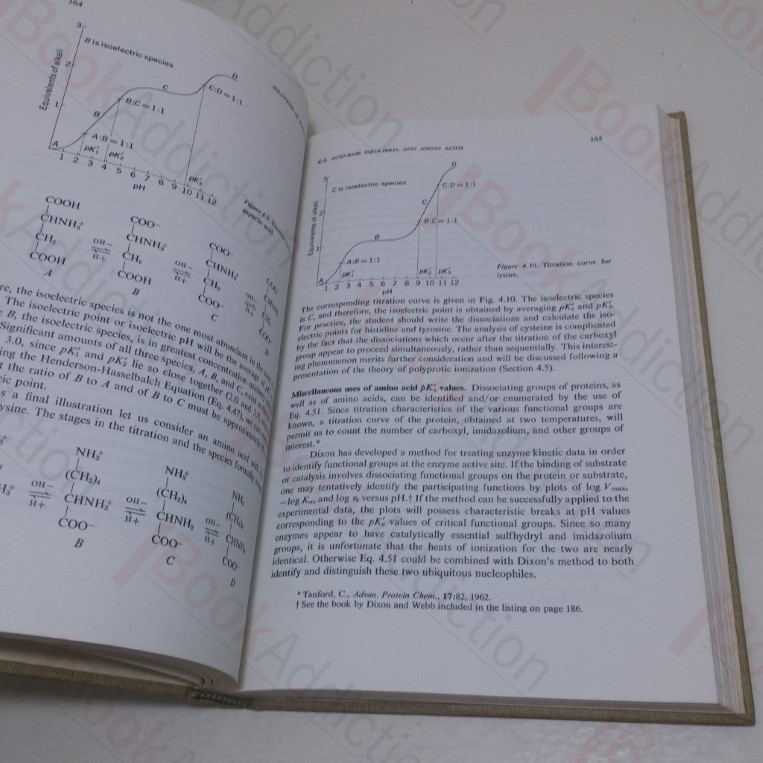 164
3
B is isoelectric species
D
2
Equivalents of alkali
C
C:D = 1:1
B:C = 1:1
1
B
A:B = 1:1
A
pK′₁
pK′₂
pK′₃
1 2 3 4 5 6 7 8 9 10 11 12
pH
COOH
CHNH₃⁺
CH₂
COOH
A
OH−
H+
COO⁻
CHNH₃⁺
CH₂
COOH
B
OH−
H+
COO⁻
CHNH₃⁺
CH₂
COO⁻
C
OH−
H+
re, the isoelectric species is not the one most abundant
The isoelectric point or isoelectric pH will be the average of
B, the isoelectric species, is in greatest concentration
Significant amounts of all three species, A, B, and C,
3.0, since pK′₁ and pK′₂ lie so close together (2.0 and
ing the Henderson-Hasselbalch Equation (Eq.
t the ratio of B to A and of B to C must be approximately
ric point.
s a final illustration let us consider an amino acid
ysine. The stages in the titration and the species
OH−
H+
NH₃⁺
(CH₂)₄
CHNH₃⁺
COO⁻
B
OH−
H+
NH₃⁺
(CH₂)₄
CHNH₂
COO⁻
C
OH−
H+
NH₂
(CH₂)₄
CHNH₂
COO⁻
D
4.4. ACID-BASE EQUILIBRIA AND AMINO ACIDS
165
3
C is isoelectric species
D
C:D = 1:1
2
Equivalents of alkali
C
B:C = 1:1
B
1
A:B = 1:1
A
pK′₁
pK′₂ pK′₃
1 2 3 4 5 6 7 8 9 10 11 12
pH
Figure 4.10. Titration curve for
lysine.
The corresponding titration curve is given in Fig. 4.10. The isoelectric species
is C, and therefore, the isoelectric point is obtained by averaging pK′₂ and pK′₃.
For practice, the student should write the dissociations and calculate the iso-
electric points for histidine and tyrosine. The analysis of cysteine is complicated
by the fact that the dissociations which occur after the titration of the carboxyl
group appear to proceed simultaneously, rather than sequentially. This interest-
ing phenomenon merits further consideration and will be discussed following a
presentation of the theory of polyprotic ionization (Section 4.5).
Miscellaneous uses of amino acid pK′ₐ values. Dissociating groups of proteins, as
well as of amino acids, can be identified and/or enumerated by the use of
Eq. 4.51. Since titration characteristics of the various functional groups are
known, a titration curve of the protein, obtained at two temperatures, will
permit us to count the number of carboxyl, imidazolium, and other groups of
interest.*
Dixon has developed a method for treating enzyme kinetic data in order
to identify functional groups at the enzyme active site. If the binding of substrate
or catalysis involves dissociating functional groups on the protein or substrate,
one may tentatively identify the participating functions by plots of log Vₘₐₓ,
−log Kₘ, and log v₀ versus pH.† If the method can be successfully applied to the
experimental data, the plots will possess characteristic breaks at pH values
corresponding to the pK′ₐ values of critical functional groups. Since so many
enzymes appear to have catalytically essential sulfhydryl and imidazolium
groups, it is unfortunate that the heats of ionization for the two are nearly
identical. Otherwise Eq. 4.51 could be combined with Dixon's method to both
identify and distinguish these two ubiquitous nucleophiles.
* Tanford, C., Advan. Protein Chem., 17:82, 1962.
† See the book by Dixon and Webb included in the listing on page 186.
BookAddiction